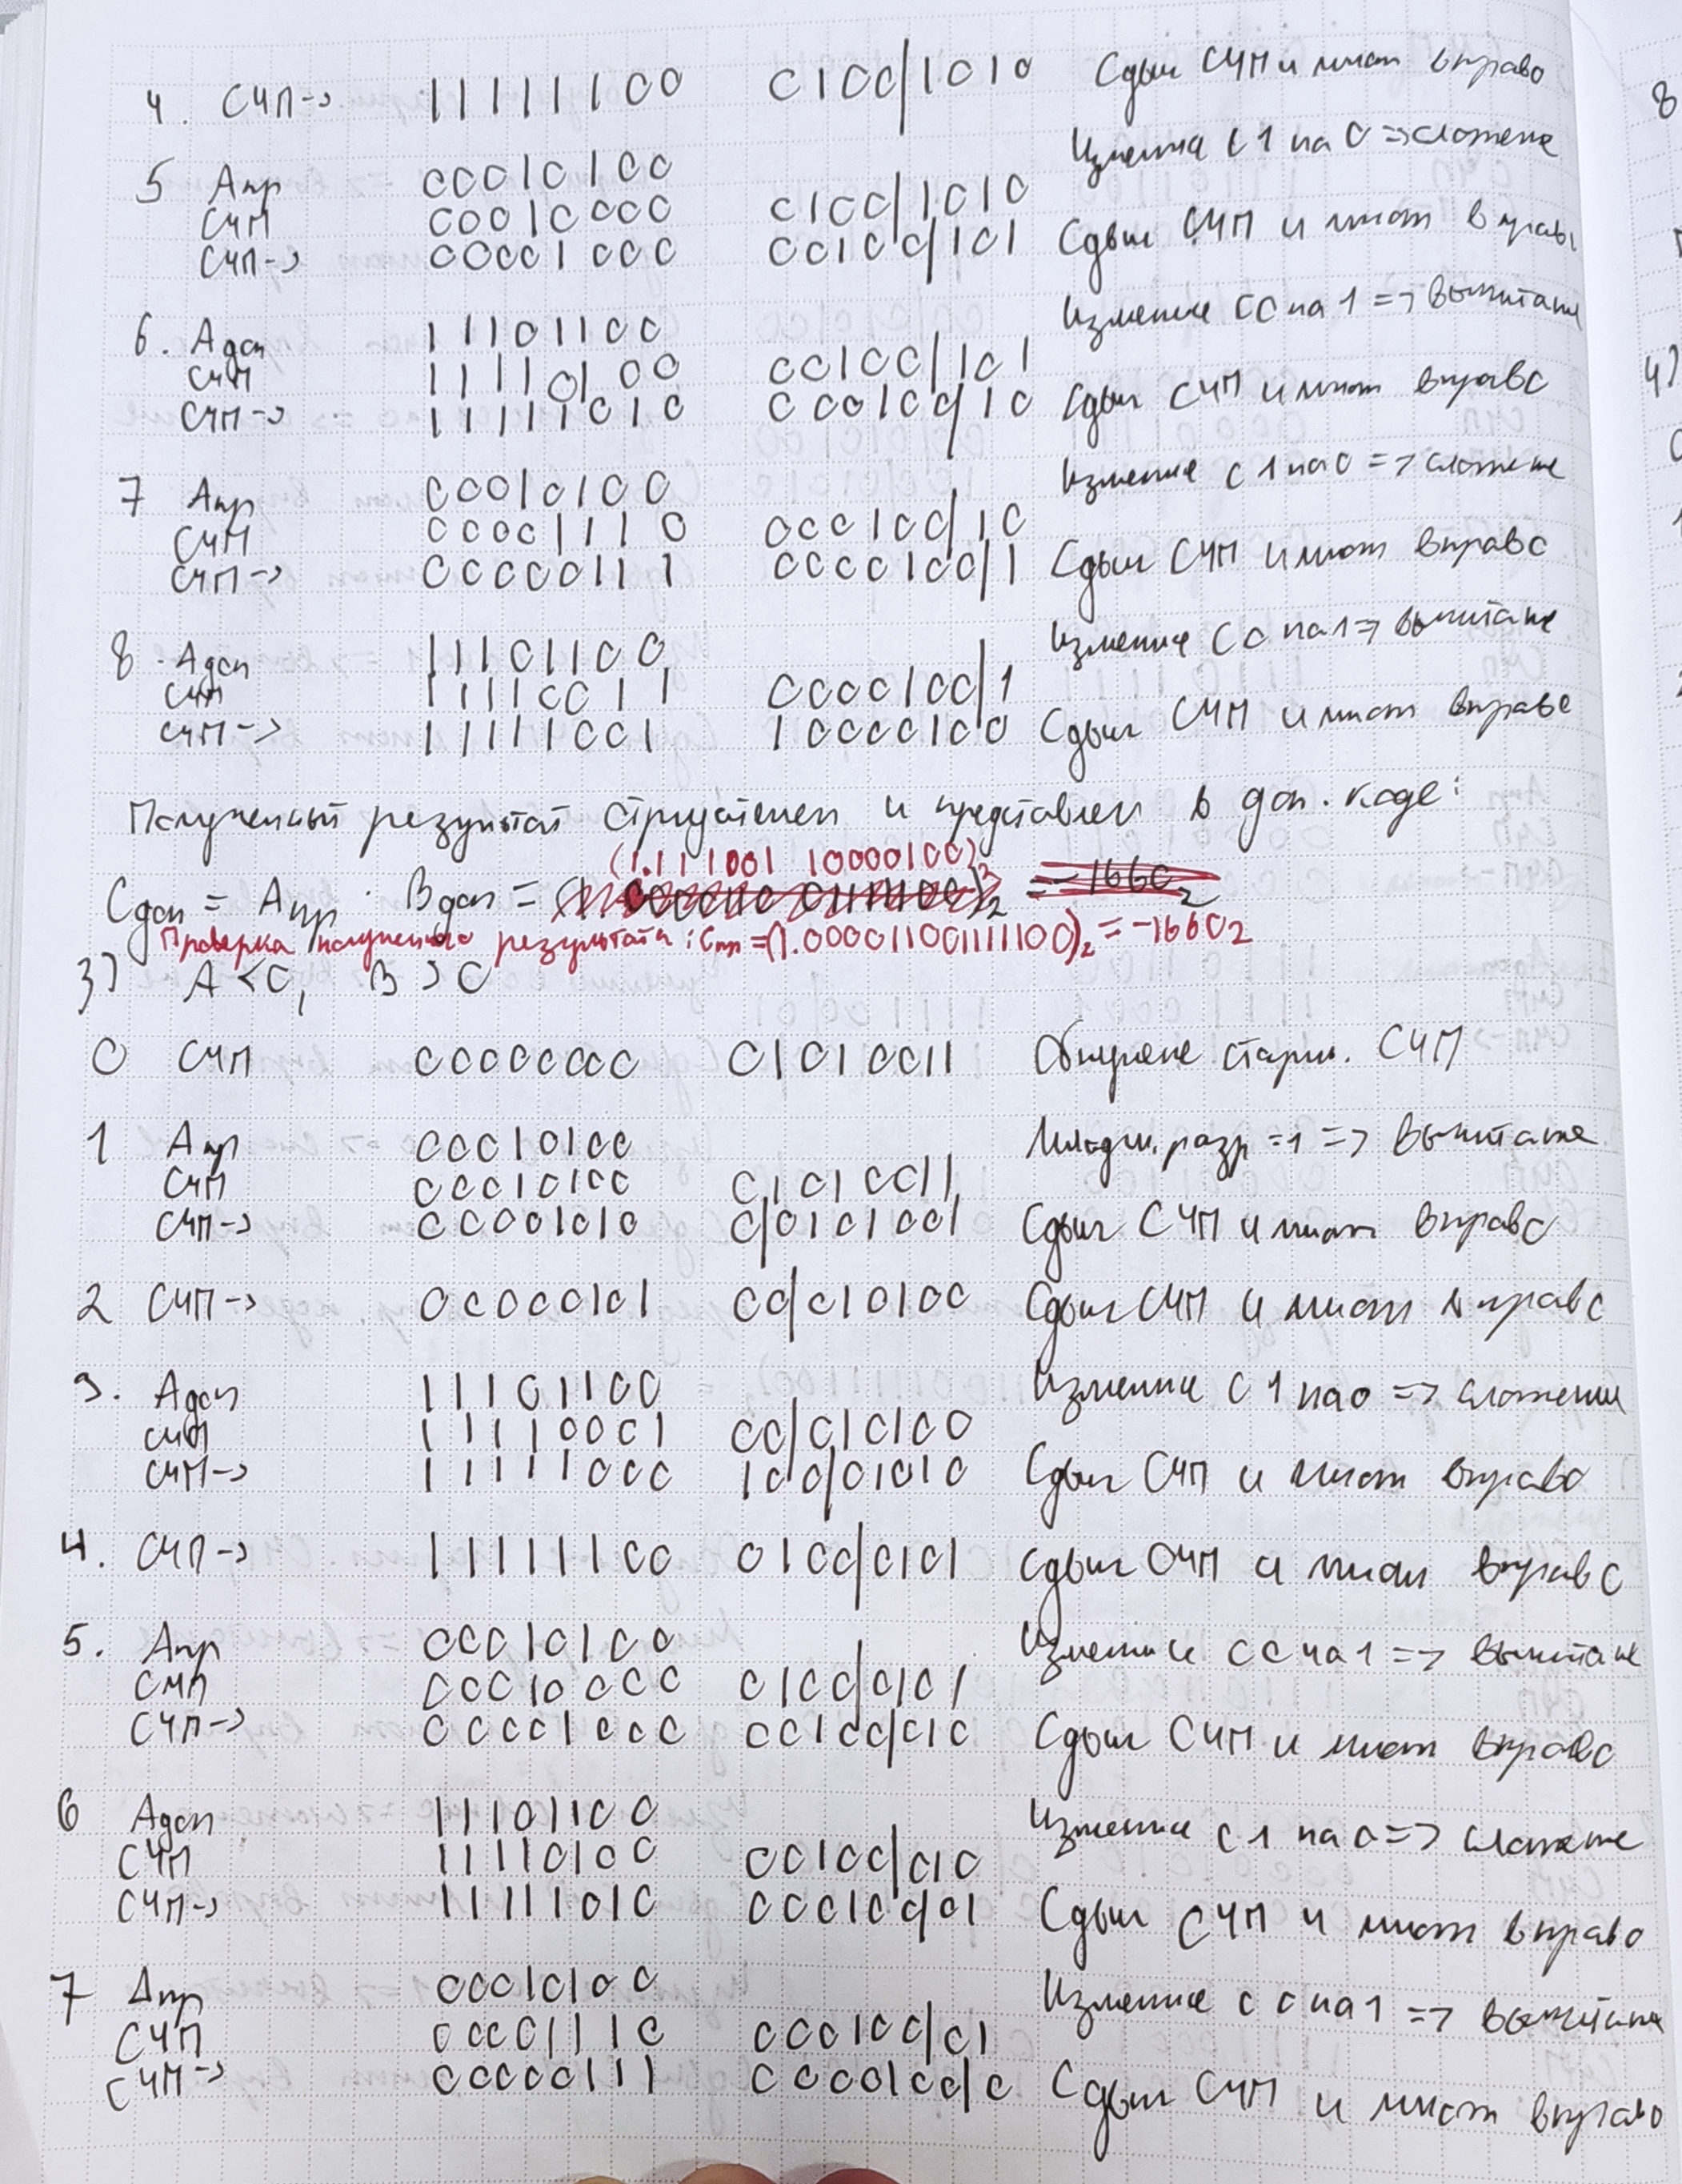 4. СЧП-> 11111100 0100|1010 Сдвиг СЧП и множ вправо
Изменение с 1 на 0 => сложение
5 Апр 00010100
СЧП 00010000 0100|1010
СЧП-> 00001000 00100|101 Сдвиг СЧП и множ вправо
Изменение с 0 на 1 => вычитание
6. Адоп 11101100
СЧП 11110100 00100|101
СЧП-> 11111010 000100|10 Сдвиг СЧП и множ вправо
Изменение с 1 на 0 => сложение
7 Апр 00010100
СЧП 00001110 000100|10
СЧП-> 00000111 0000100|1 Сдвиг СЧП и множ вправо
Изменение с 0 на 1 => вычитание
8. Адоп 11101100
СЧП 11110011 0000100|1
СЧП-> 11111001 10000100 Сдвиг СЧП и множ вправо
Полученный результат отрицателен и представлен в доп. коде:
(1.1111001 10000100)2
Cдоп = Aпр · Bдоп = = -1660 2
Проверка полученного результата: Cпр =(1.000011001111100)2 = -1660 2
3) A < 0, B > 0
0 СЧП 00000000 01010011 Обнуление старш. СЧП
1 Апр 00010100 Младш. разр =1 => вычитание
СЧП 00010100 01010011
СЧП-> 00001010 0|0101001 Сдвиг СЧП и множ вправо
2 СЧП-> 00000101 00|010100 Сдвиг СЧП и множ вправо
3. Адоп 11101100 Изменение с 1 на 0 => сложение
СЧП 11110001 00|010100
СЧП-> 11111000 100|01010 Сдвиг СЧП и множ вправо
4. СЧП-> 11111100 0100|0101 Сдвиг СЧП и множ вправо
5. Апр 00010100 Изменение с 0 на 1 => вычитание
СЧП 00010000 0100|0101
СЧП-> 00001000 00100|010 Сдвиг СЧП и множ вправо
6 Адоп 11101100 Изменение с 1 на 0 => сложение
СЧП 11110100 00100|010
СЧП-> 11111010 000100|01 Сдвиг СЧП и множ вправо
7 Апр 00010100 Изменение с 0 на 1 => вычитание
СЧП 00001110 000100|01
СЧП-> 00000111 0000100|0 Сдвиг СЧП и множ вправо